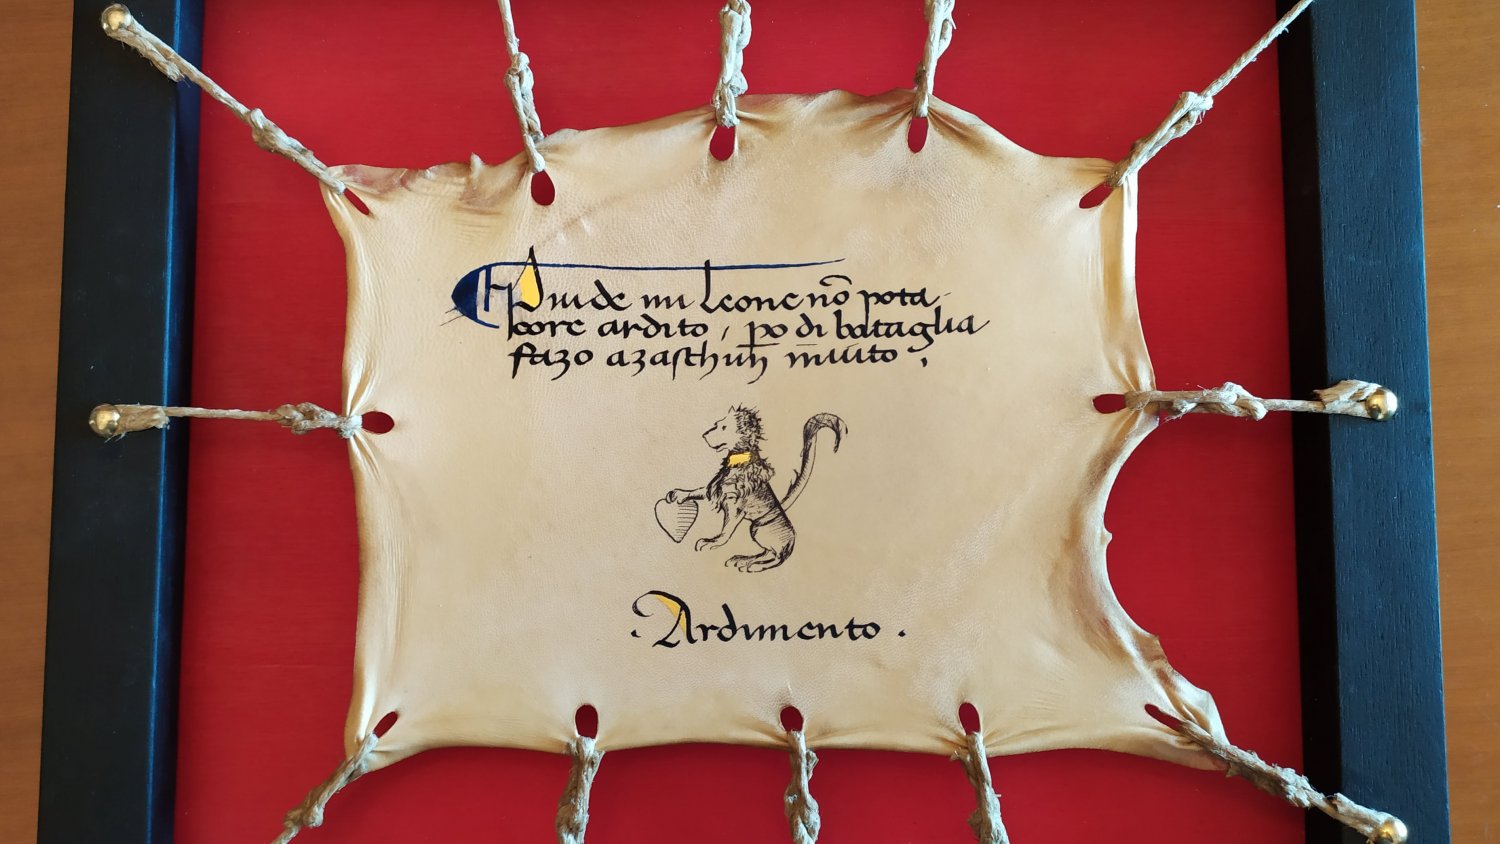 Piu de mi Leone nō pota
core ardito, ꝑo di bataglia
fazo azaschun inuito.
.Ardimento.